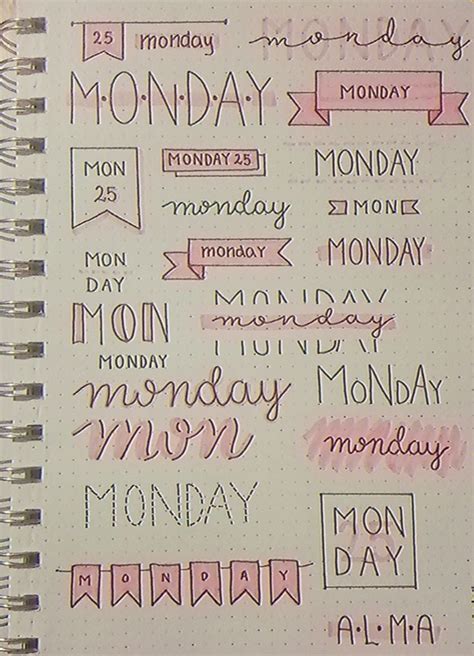 25 monday
monday
M·O·N·D·A·Y
MONDAY
MON
25
MONDAY 25
MONDAY
monday
MON
MON
DAY
monday
MONDAY
MON
MONDAY
MONDAY
monday
monday
MoNdAy
mon
monday
MONDAY
MON
25
DAY
MONDAY
A·L·M·A